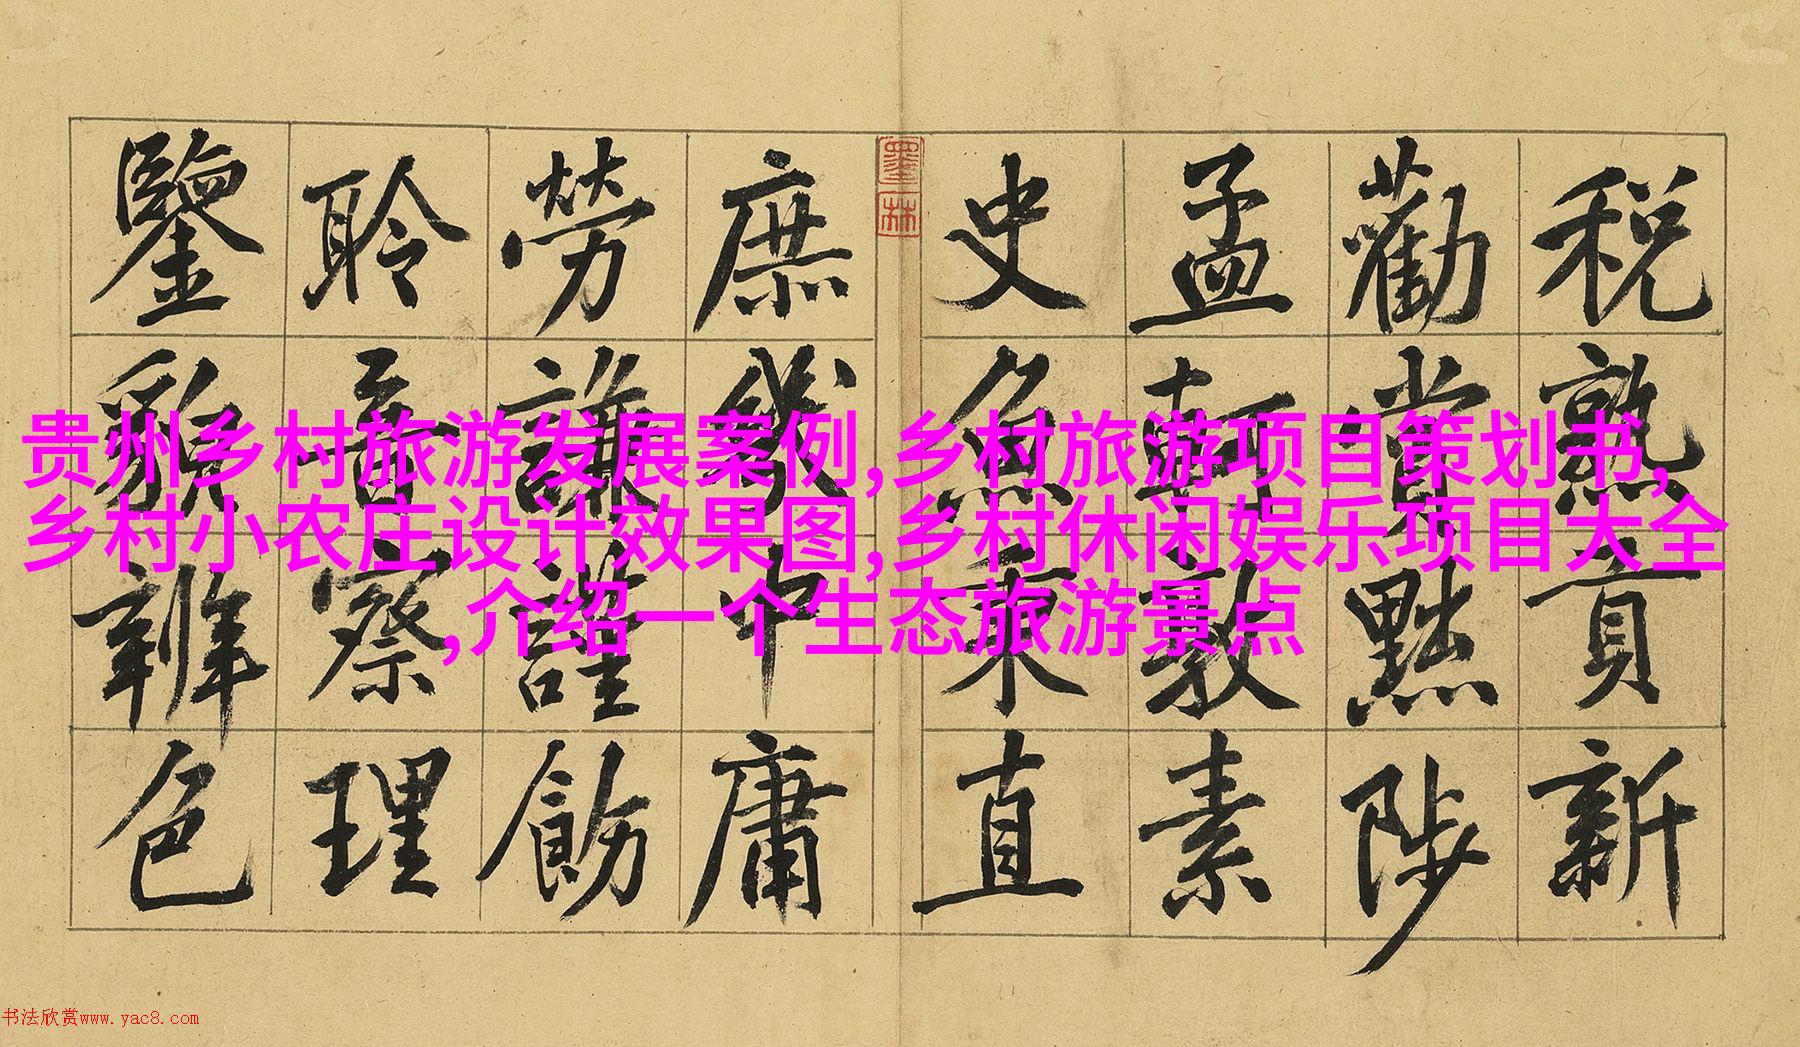 税熟貢新
勸賞黜陟
孟軻敦素
史魚秉直
墨林
庶幾中庸
勞謙謹飭
聆音察理
鑒貌辨色
贵州乡村旅游发展案例,乡村旅游项目策划书,
乡村小农庄设计效果图,乡村休闲娱乐项目大全
,介绍一个生态旅游景点
书法欣赏www.yac8.com